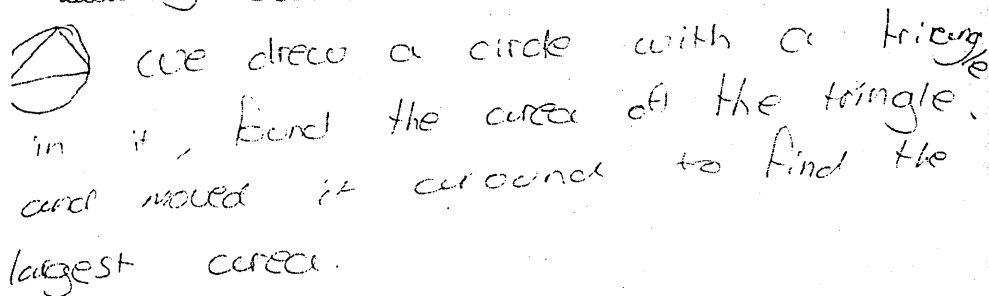 we drew a circle with a triangle
in it, found the area of the tringle.
and moved it around to find the
largest area.